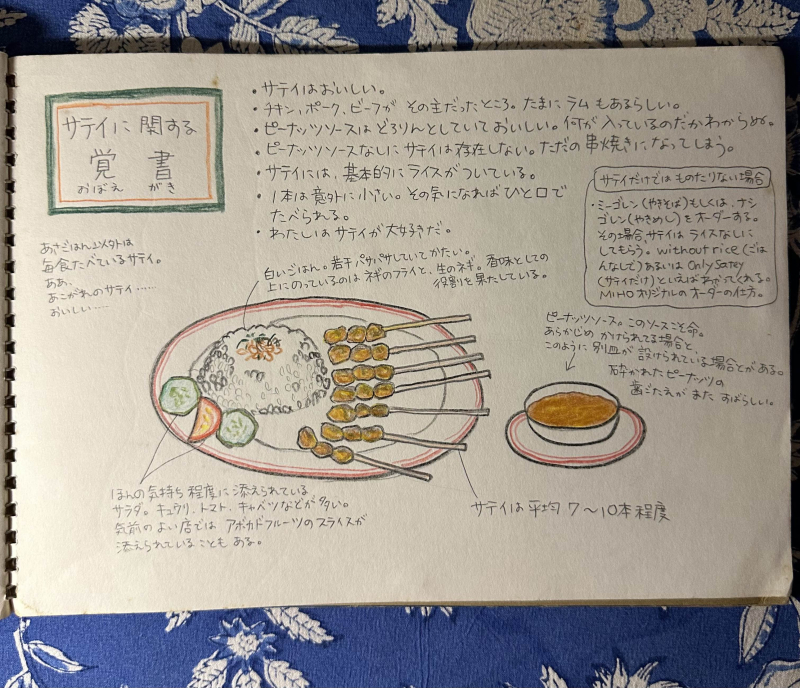 サテイに関する
覚書
おぼえがき
・サテイはおいしい。
・チキン、ポーク、ビーフが その主だったところ。たまに ラム もあるらしい。
・ピーナッツソースは どろりんとしていて おいしい。何が入っているのだかわからぬ。
・ピーナッツソースなしに サテイは存在しない。ただの串焼きになってしまう。
・サテイには、基本的に ライスがついている。
・1本は意外に小さい。その気になればひと口で
たべられる。
・わたしは サテイが大好きだ。
サテイだけでは ものたりない場合
・ミーゴレン(やきそば)もしくは、ナシ
ゴレン(やきめし)をオーダーする。
その場合、サテイは ライスなしに
してもらう。without rice(ごは
んなしで)あるいは Only Satey
(サテイだけ)といえばわかってくれる。
MIHOオリジナルのオーダーの仕方。
あさごはん以外は
毎食たべているサテイ。
ああ、
あこがれのサテイ……
おいしい……
白いごはん。若干パサパサしていてかたい。
上にのっているのは ネギのフライと、生のネギ。香味としての
役割を果たしている。
ピーナッツソース。このソースこそ命。
あらかじめ かけられてる場合と、
このように 別皿が 設けられている場合とがある。
砕かれたピーナッツの
歯ごたえが また すばらしい。
ほんの気持ち程度に添えられている
サラダ。キュウリ、トマト、キャベツなどが多い。
気前のよい店では アボカドフルーツのスライスが
添えられていることも ある。
サテイは 平均 7〜10本 程度